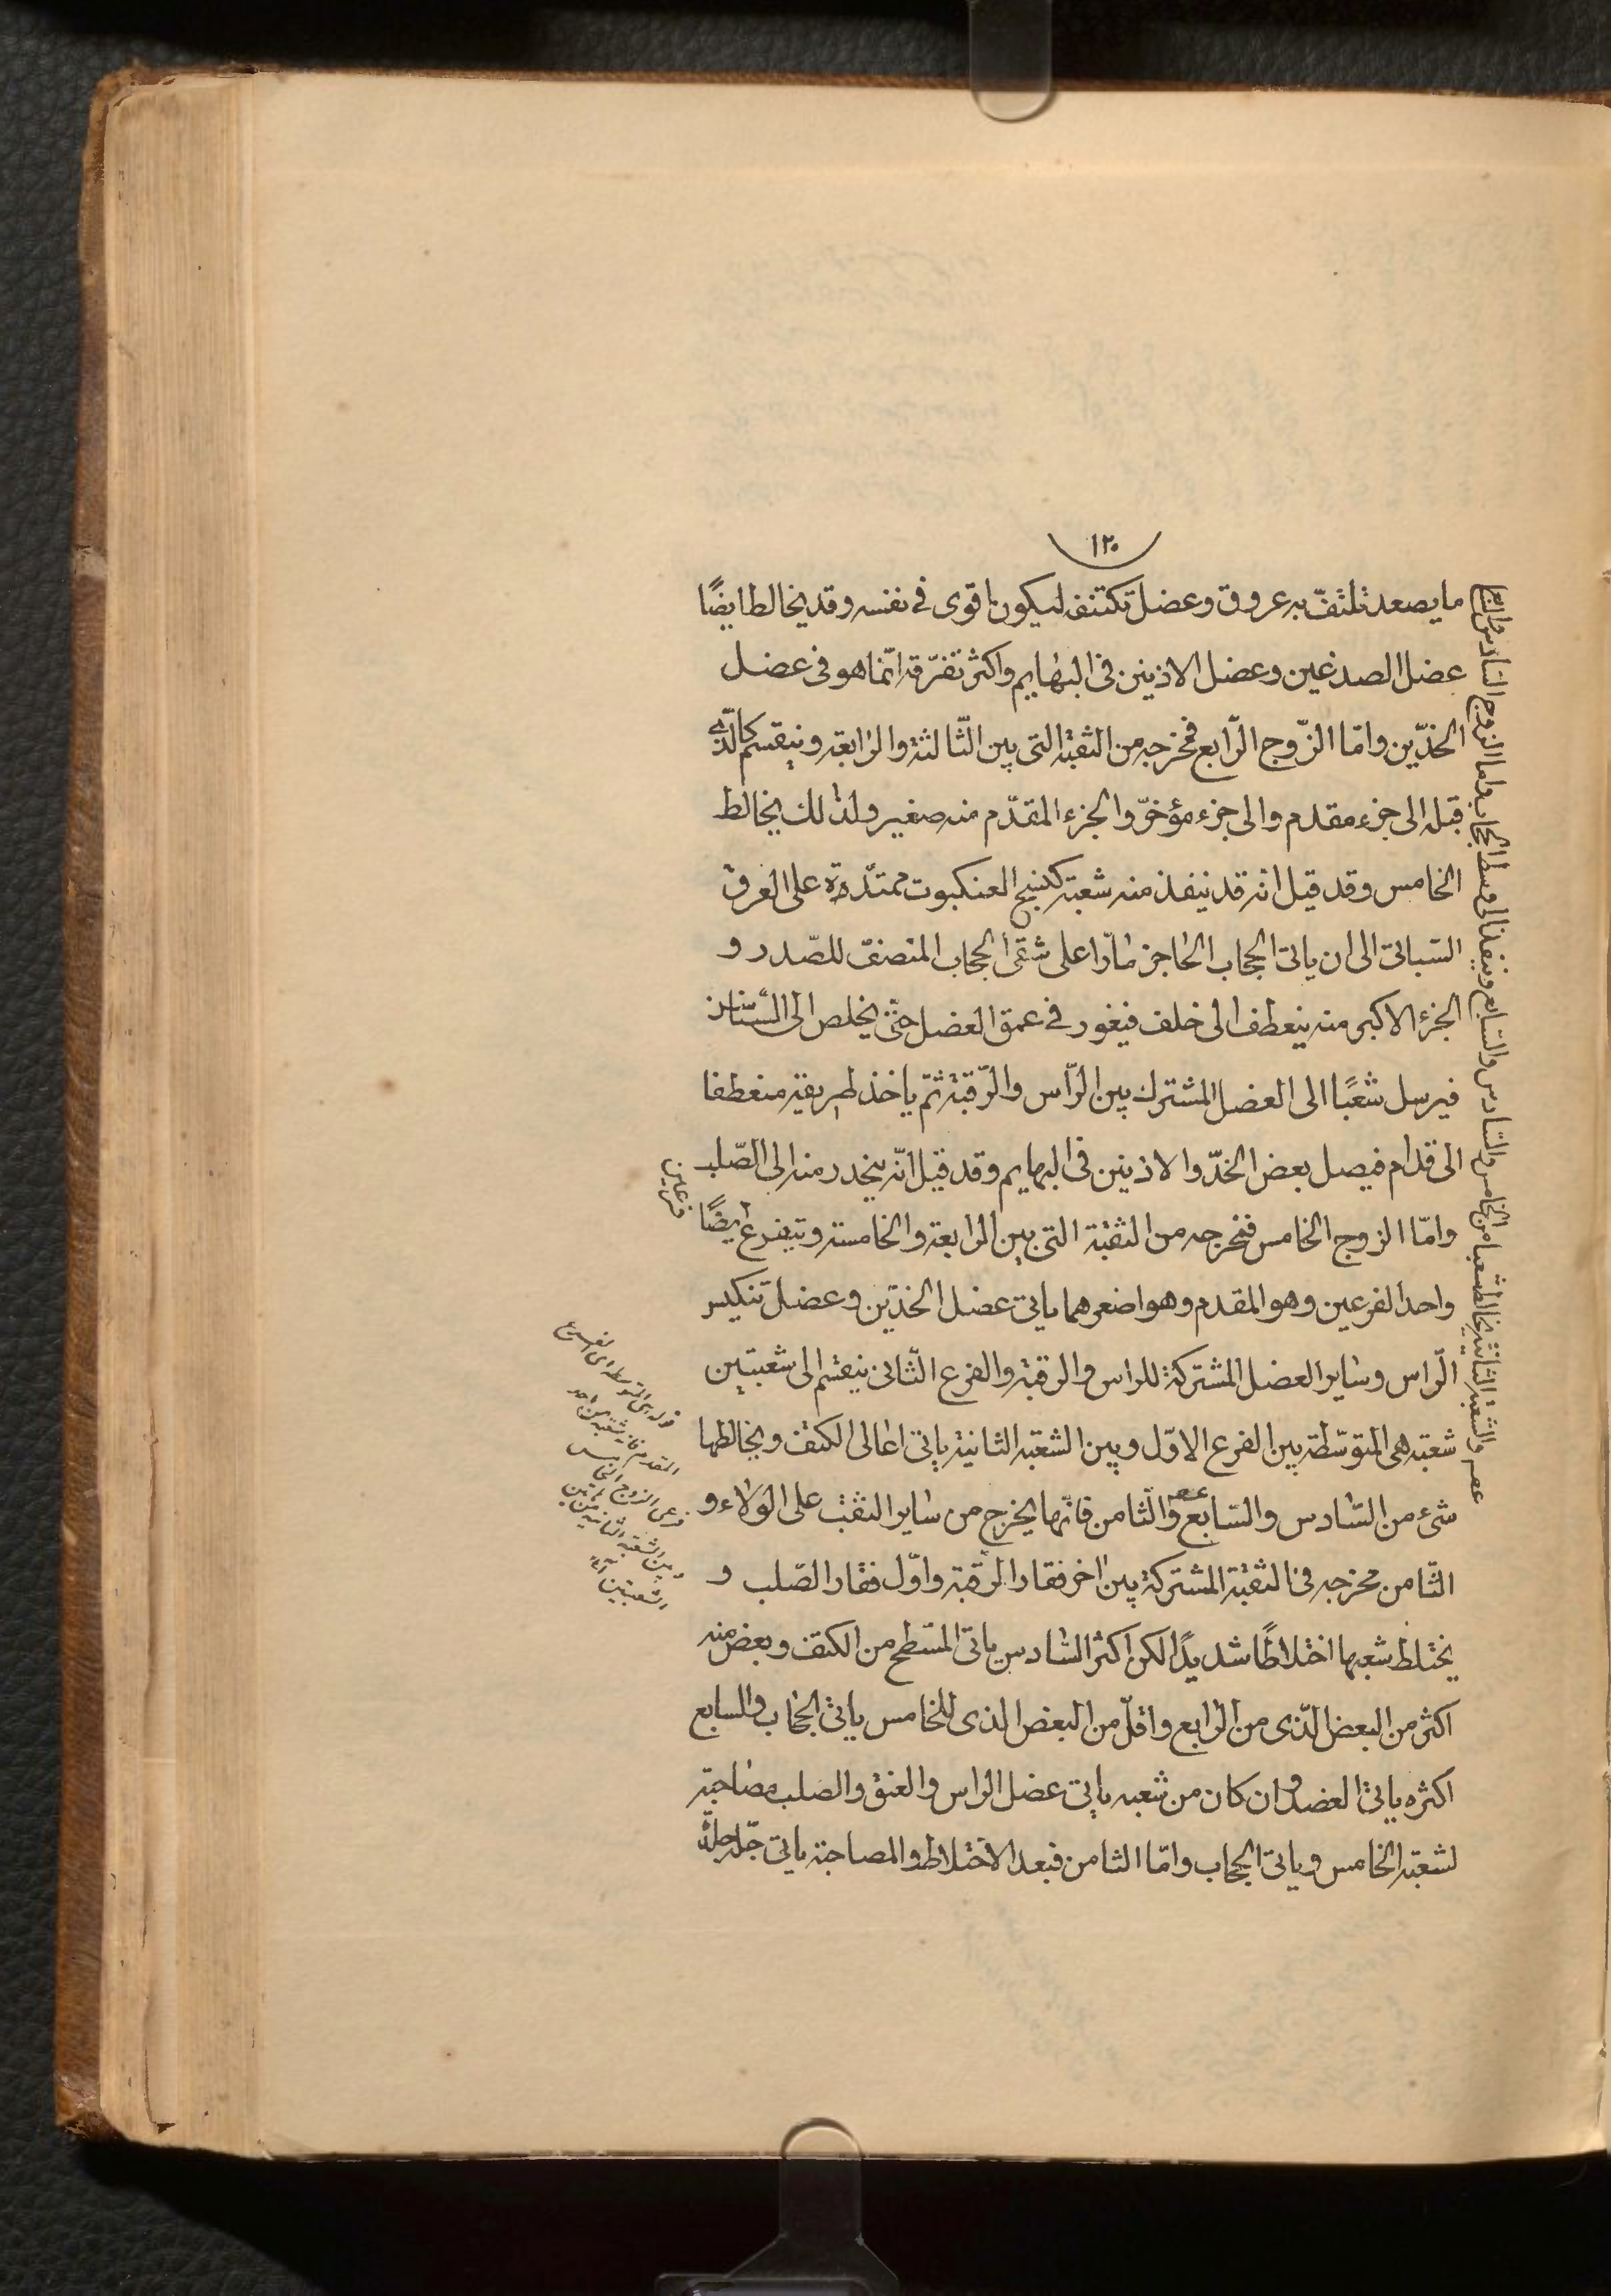 ١٢٠
ما يصعد تلتفّ به عروق وعضل تكتنفه ليكون اقوى فى نفسه وقد يخالط ايضًا
عضل الصدغين وعضل الاذنين فى البهايم واكثر تفرّقه انّما هو فى عضل
الخدّين وامّا الزّوج الرّابع فمخرجه من الثقبة التى بين الثّالثة والرّابعة وينقسم كالّذى
قبله الى جزء مقدم والى جزء مؤخّر والجزء المقدّم منه صغير ولذلك يخالط
الخامس وقد قيل انه قد ينفذ منه شعبة كنسج العنكبوت ممتدّة على العرق
السباتى الى ان ياتى الحجاب الحاجز مارّا على شقى الحجاب المنصف للصّدر و
الجزء الاكبر منه ينعطف الى خلف فيغور فى عمق العضل حتّى يخلص الى السّناسن
فيرسل شعبًا الى العضل المشترك بين الرّاس والرّقبة ثمّ ياخذ طريقه منعطفا
الى قدام فيصل بعضل الخدّ والاذنين فى البهايم وقد قيل انّه ينحدر منه الى الصّلب
وامّا الزوج الخامس فمخرجه من الثقبة التى بين الرابعة والخامسة ويتفرع ايضًا
فرعين
واحد الفرعين وهو المقدم وهو اصغرهما ياتى عضل الخدّين وعضل تنكيس
الرّاس وساير العضل المشتركة للراس والرقبة والفرع الثّانى ينقسم الى شعبتين
شعبة هى المتوسّطة بين الفرع الاوّل وبين الشعبة الثانية ياتى اعالى الكتف ويخالطها
شىء من السّادس والسّابع والثّامن فانّها يخرج من ساير الثقب على الولاء و
الثّامن مخرجه فى الثقبة المشتركة بين اخر فقار الرقبة واوّل فقار الصّلب و
يختلط شعبها اختلاطًا شديدًا لكن اكثر السّادس ياتى المسّطح من الكتف وبعض منه
اكثر من البعض الّذى من الرّابع واقلّ من البعض الذى للخامس ياتى الحجاب والسابع
اكثره ياتى العضد وان كان من شعبه ياتى عضل الراس والعنق والصلب مصاحبة
لشعبة الخامس وياتى الحجاب وامّا الثامن فبعد الاختلاط والمصاحبة ياتى جلّه جلدة
والشعبة الثانية يخالطه شعبا من الخامس والسّادس والسّابع وينفذ الى وسط الحجاب واما الزوج السّادس والسابع
قوله هى المتوسطة اى الفرع
المقدم
فرعى الزوج الخامس
وبين الشعبة الثانية من
الشعبتين